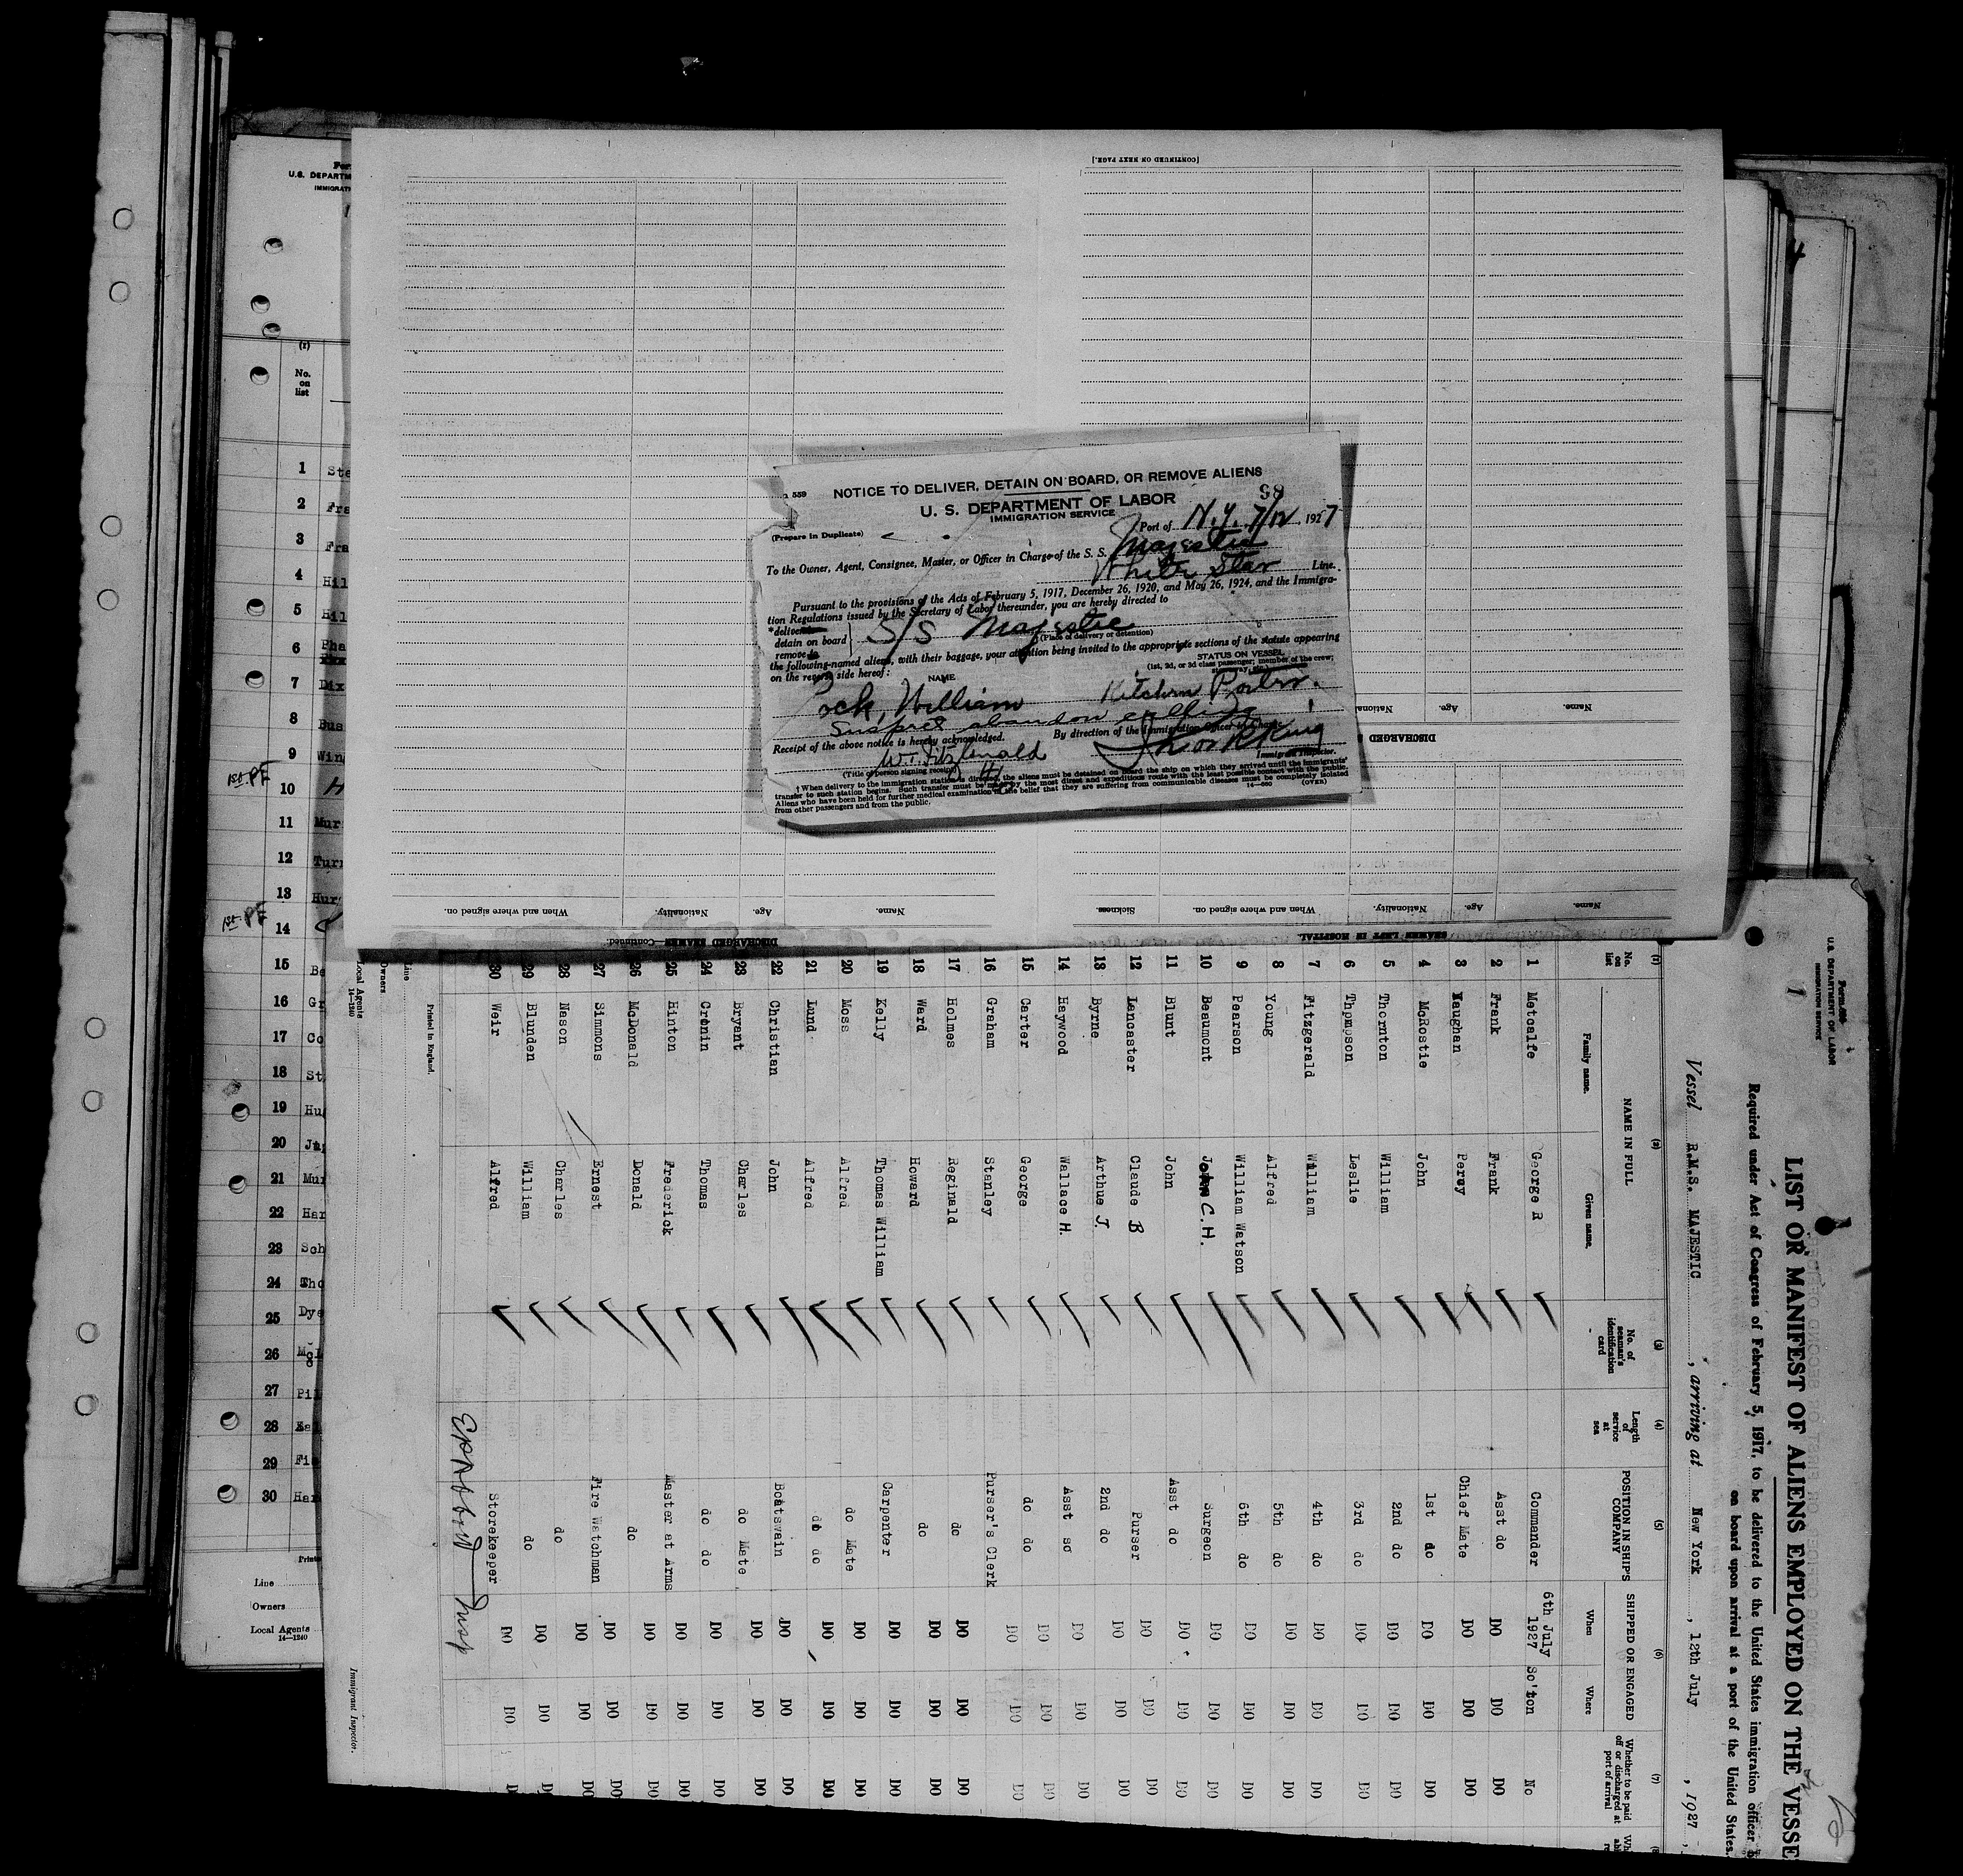 NOTICE TO DELIVER, DETAIN ON BOARD, OR REMOVE ALIENS
559
98
U. S. DEPARTMENT OF LABOR
IMMIGRATION SERVICE
Port of N.Y. 7/12 1927
(Prepare in Duplicate)
To the Owner, Agent, Consignee, Master, or Officer in Charge of the S. S. Majestic
White Star Line.
Pursuant to the provisions of the Acts of February 5, 1917, December 26, 1920, and May 26, 1924, and the Immigra-
tion Regulations issued by the Secretary of Labor thereunder, you are hereby directed to
*deliver
detain on board S/S Majestic
remove to
(Place of delivery or detention)
the following-named aliens, with their baggage, your attention being invited to the appropriate sections of the statute appearing
on the reverse side hereof:
NAME
STATUS ON VESSEL
(1st, 2d, or 3d class passenger; member of the crew;
stowaway, etc.)
William Kitchen Porter.
Suspect abandon calling
Receipt of the above notice is hereby acknowledged.
By direction of the Immigration Officer in Charge.
W. Fitzgerald
Immigrant Inspector.
(Title of person signing receipt)
† When delivery to the immigration station is directed, the aliens must be detained on board the ship on which they arrived until the immigrants'
transfer to such station begins. Such transfer must be made by the most direct and expeditious route with the least possible contact with the public.
Aliens who have been held for further medical examination in the belief that they are suffering from communicable diseases must be completely isolated
from other passengers and from the public.
14—560 (OVER)
[CONTINUED ON NEXT PAGE.]
Name. Age.
DISCHARGED
Name. Age. Nationality. When and where signed on. Sickness.
SEAMEN LEFT IN HOSPITAL.
Name. Age. Nationality. When and where signed on.
DISCHARGED SEAMEN—Continued.
U.S. DEPARTMENT OF LABOR
IMMIGRATION SERVICE
1
LIST OR MANIFEST OF ALIENS EMPLOYED ON THE VESSE
Required under Act of Congress of February 5, 1917, to be delivered to the United States immigration officer
on board upon arrival at a port of the United States
Vessel R.M.S. MAJESTIC, arriving at New York, 12th July, 1927
(1) (2) (3) (4) (5) (6) (7)
No. on list
NAME IN FULL
Family name. Given name.
No. of seaman's identification card
Length of service at sea
POSITION IN SHIP'S COMPANY
SHIPPED OR ENGAGED
When Where
Whether to be paid off or discharged at port of arrival
1 Metcalfe George R Commander 6th July 1927 So'ton No
2 Frank Frank Asst do DO DO DO
3 Maughan Percy Chief Mate DO DO DO
4 McRostie John 1st do DO DO DO
5 Thornton William 2nd do DO DO DO
6 Thompson Leslie 3rd do DO DO DO
7 Fitzgerald William 4th do DO DO DO
8 Young Alfred 5th do DO DO DO
9 Pearson William Watson 6th do DO DO DO
10 Beaumont John C.H. Surgeon DO DO DO
11 Blunt John Asst do DO DO DO
12 Lancaster Claude B Purser DO DO DO
13 Byrne Arthur J. 2nd do DO DO DO
14 Haywood Wallace H. Asst so DO DO DO
15 Carter George do do DO DO DO
16 Graham Stanley Purser's Clerk DO DO DO
17 Holmes Reginald do DO DO DO
18 Ward Howard do DO DO DO
19 Kelly Thomas William Carpenter DO DO DO
20 Moss Alfred do Mate DO DO DO
21 Lund Alfred do do DO DO DO
22 Christian John Boatswain DO DO DO
23 Bryant Charles do Mate DO DO DO
24 Cronin Thomas do do DO DO DO
25 Hinton Frederick Master at Arms DO DO DO
26 McDonald Donald do DO DO DO
27 Simmons Ernest Fire Watchman DO DO DO
28 Nason Charles do DO DO DO
29 Blunden William do DO DO DO
30 Weir Alfred Storekeeper DO DO DO
Printed in England.
Line
Owners
Local Agents
14—1240
Immigrant Inspector.
U.S. DEPARTM
IMMIGRATI
(1)
No. on list
1 Ste
2 Fra
3 Fra
4 Hil
5 Hil
6 Pha
7 Dix
8 Bus
9 Win
1st PF 10 H
11 Mur
12 Turn
13 Hur
1st PF 14
15 Be
16 Gr
17 Co
18 St
19 Hug
20 Jup
21 Mur
22 Har
23 Sch
24 Tho
25 Dye
26 McL
27 Pil
28 Kal
29 Fis
30 Har
Line
Owners
Local Agents
14—1240